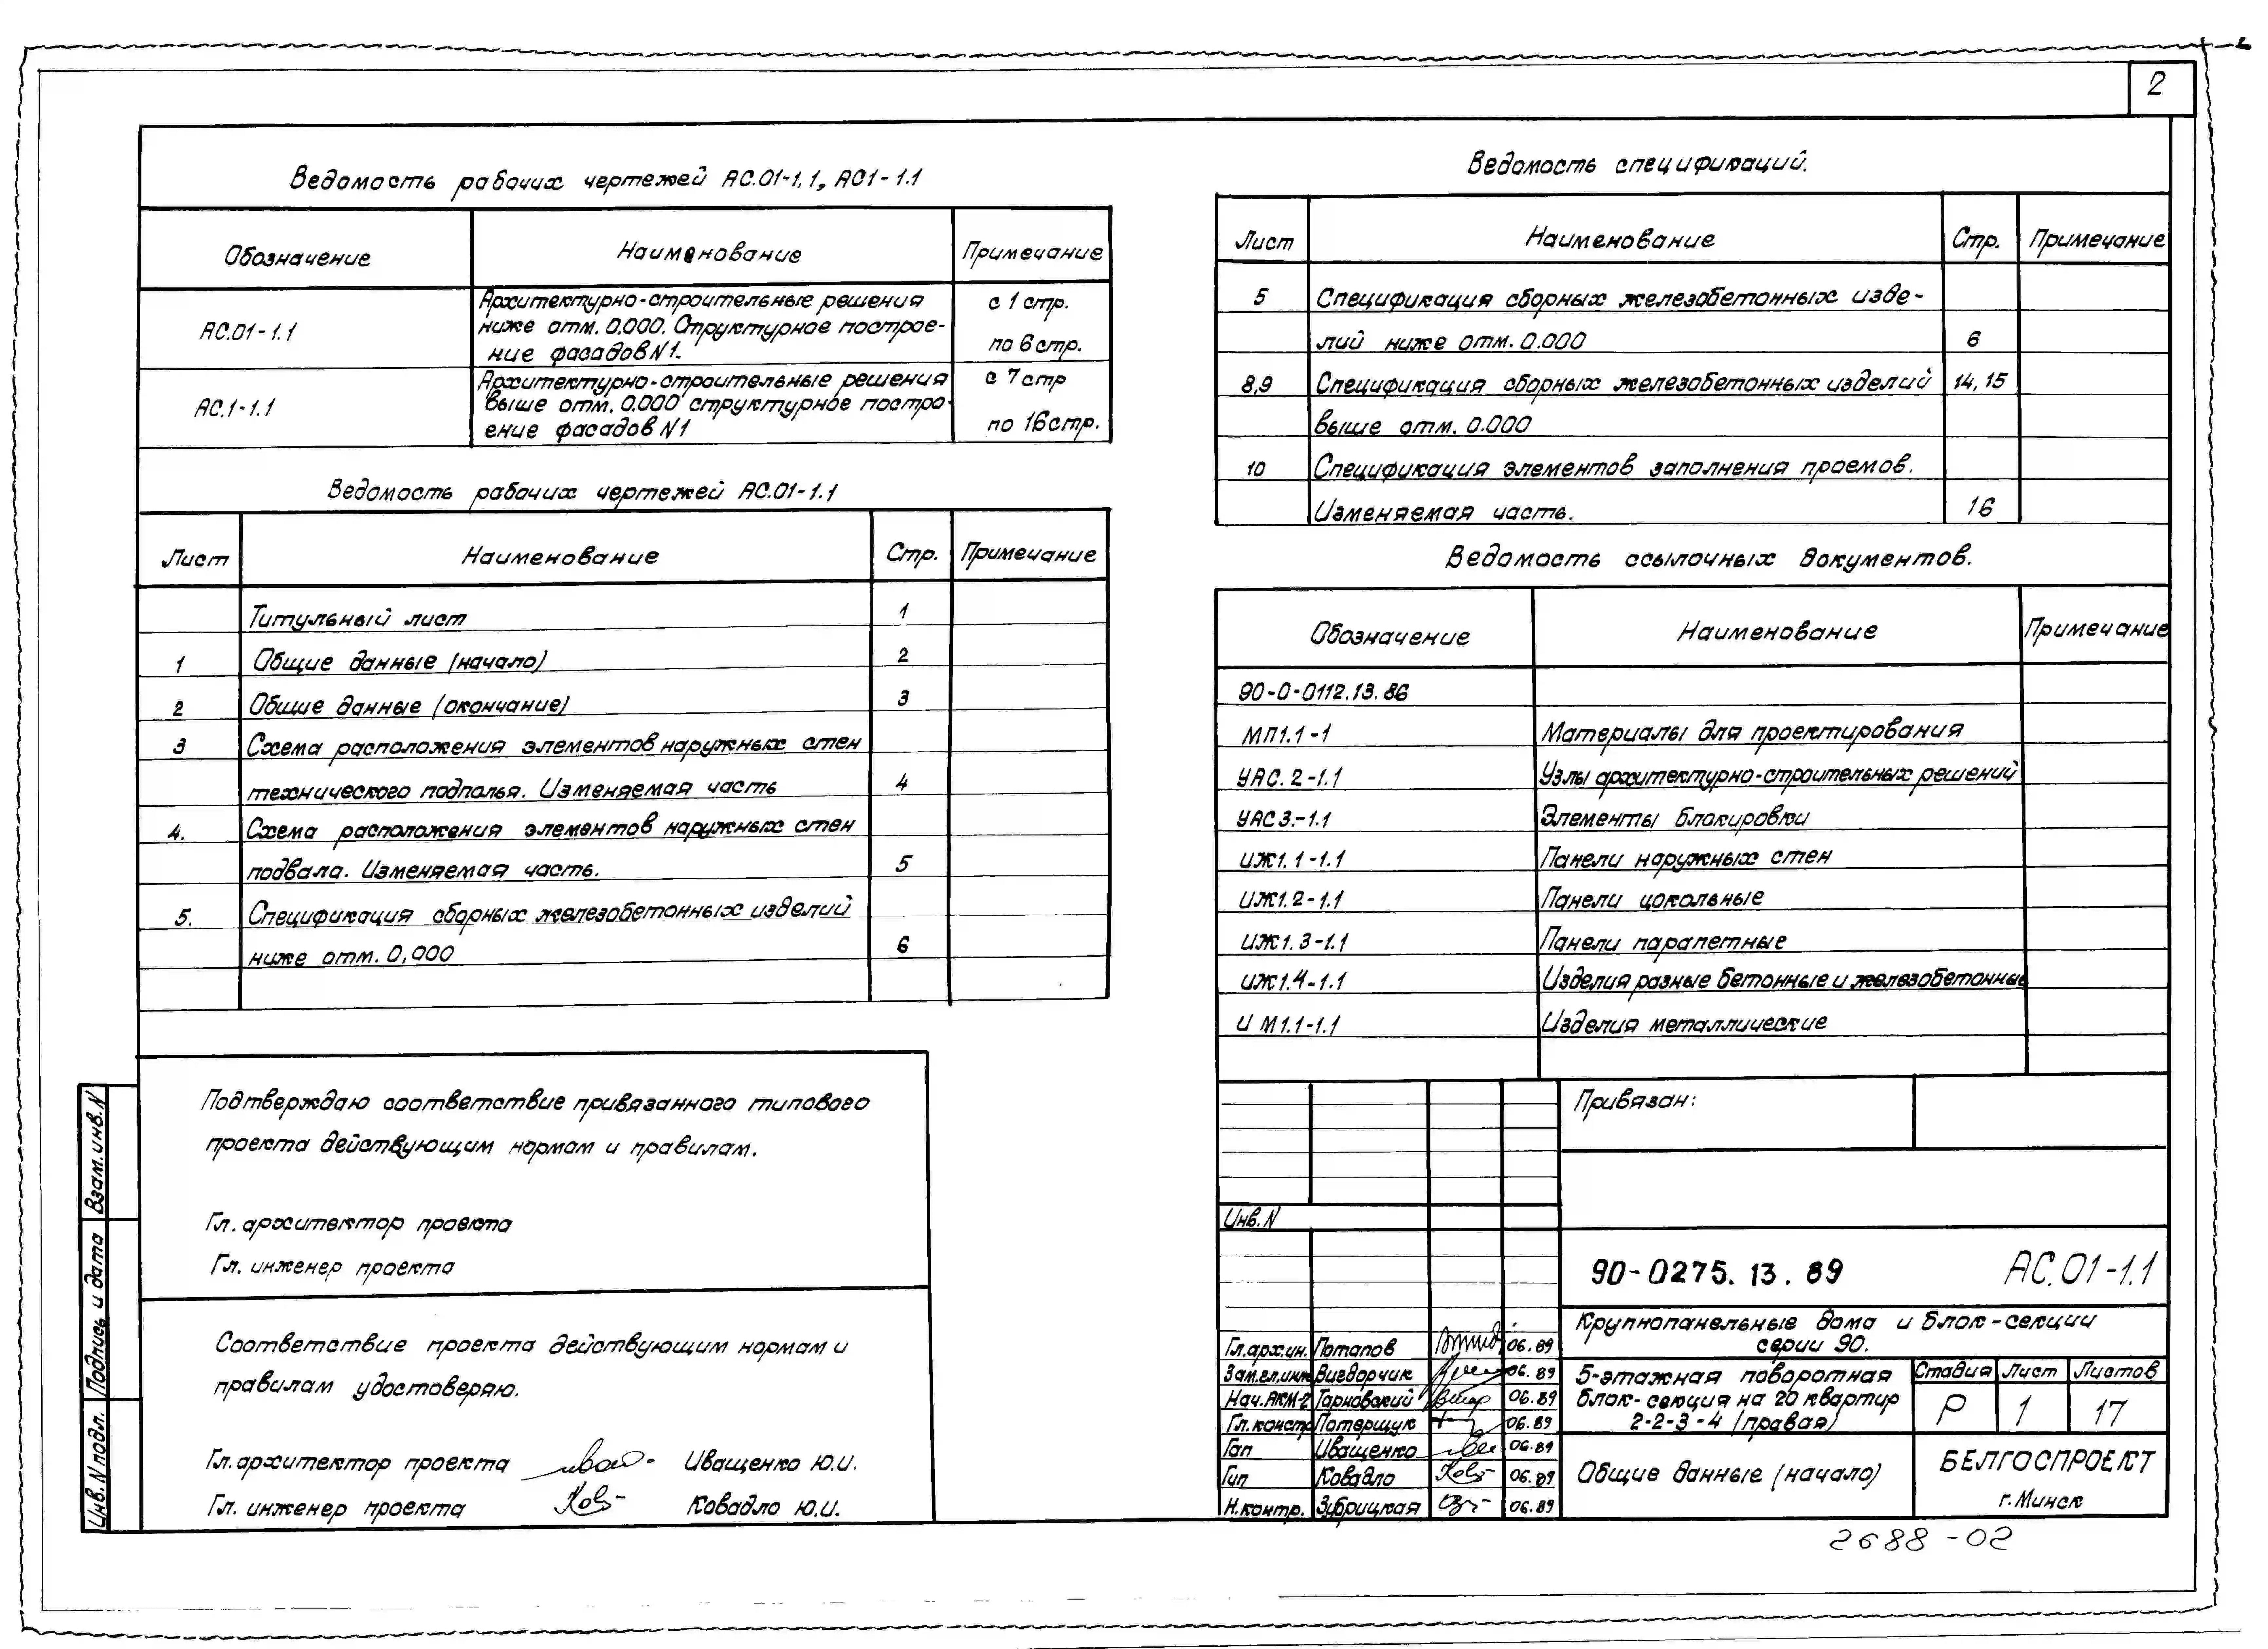 2
Ведомость рабочих чертежей АС.01-1.1, АС1-1.1
Обозначение Наименование Примечание
АС.01-1.1 Архитектурно-строительные решения с 1 стр.
ниже отм. 0.000. Структурное построе-
ние фасадов N1. по 6 стр.
АС.1-1.1 Архитектурно-строительные решения с 7 стр
выше отм. 0.000 структурное постро-
ение фасадов N1 по 16 стр.
Ведомость рабочих чертежей АС.01-1.1
Лист Наименование Стр. Примечание
Титульный лист 1
1 Общие данные (начало) 2
2 Общие данные (окончание) 3
3 Схема расположения элементов наружных стен
технического подполья. Изменяемая часть 4
4. Схема расположения элементов наружных стен
подвала. Изменяемая часть. 5
5. Спецификация сборных железобетонных изделий
ниже отм. 0,000 6
Подтверждаю соответствие привязанного типового
проекта действующим нормам и правилам.
Гл. архитектор проекта
Гл. инженер проекта
Соответствие проекта действующим нормам и
правилам удостоверяю.
Гл. архитектор проекта Иващенко Ю.И.
Гл. инженер проекта Ковадло Ю.И.
Взам. инв. N
Подпись и дата
Инв. N подл.
Ведомость спецификаций.
Лист Наименование Стр. Примечание
5 Спецификация сборных железобетонных изде-
лий ниже отм. 0.000 6
8,9 Спецификация сборных железобетонных изделий 14,15
выше отм. 0.000
10 Спецификация элементов заполнения проемов.
Изменяемая часть. 16
Ведомость ссылочных документов.
Обозначение Наименование Примечание
90-0-0112.13.86
МП1.1-1 Материалы для проектирования
УАС.2-1.1 Узлы архитектурно-строительных решений
УАС3.-1.1 Элементы блокировки
ИЖ1.1-1.1 Панели наружных стен
ИЖ1.2-1.1 Панели цокольные
ИЖ1.3-1.1 Панели парапетные
ИЖ1.4-1.1 Изделия разные бетонные и железобетонные
ИМ1.1-1.1 Изделия металлические
Привязан:
Инв. N
90-0275.13.89 АС.01-1.1
Крупнопанельные дома и блок-секции
серии 90.
Гл.арх.ин. Потапов 06.89
Зам.гл.инж Вигдорчик 06.89
Нач.АКМ-2 Тарновский 06.89
Гл.констр Потерщук 06.89
Гап Иващенко 06.89
Гип Ковадло 06.89
Н.контр. Зубрицкая 06.89
5-этажная поворотная
блок-секция на 20 квартир
2-2-3-4 (правая)
Стадия Лист Листов
Р 1 17
Общие данные (начало)
БЕЛГОСПРОЕКТ
г. Минск
2688-02